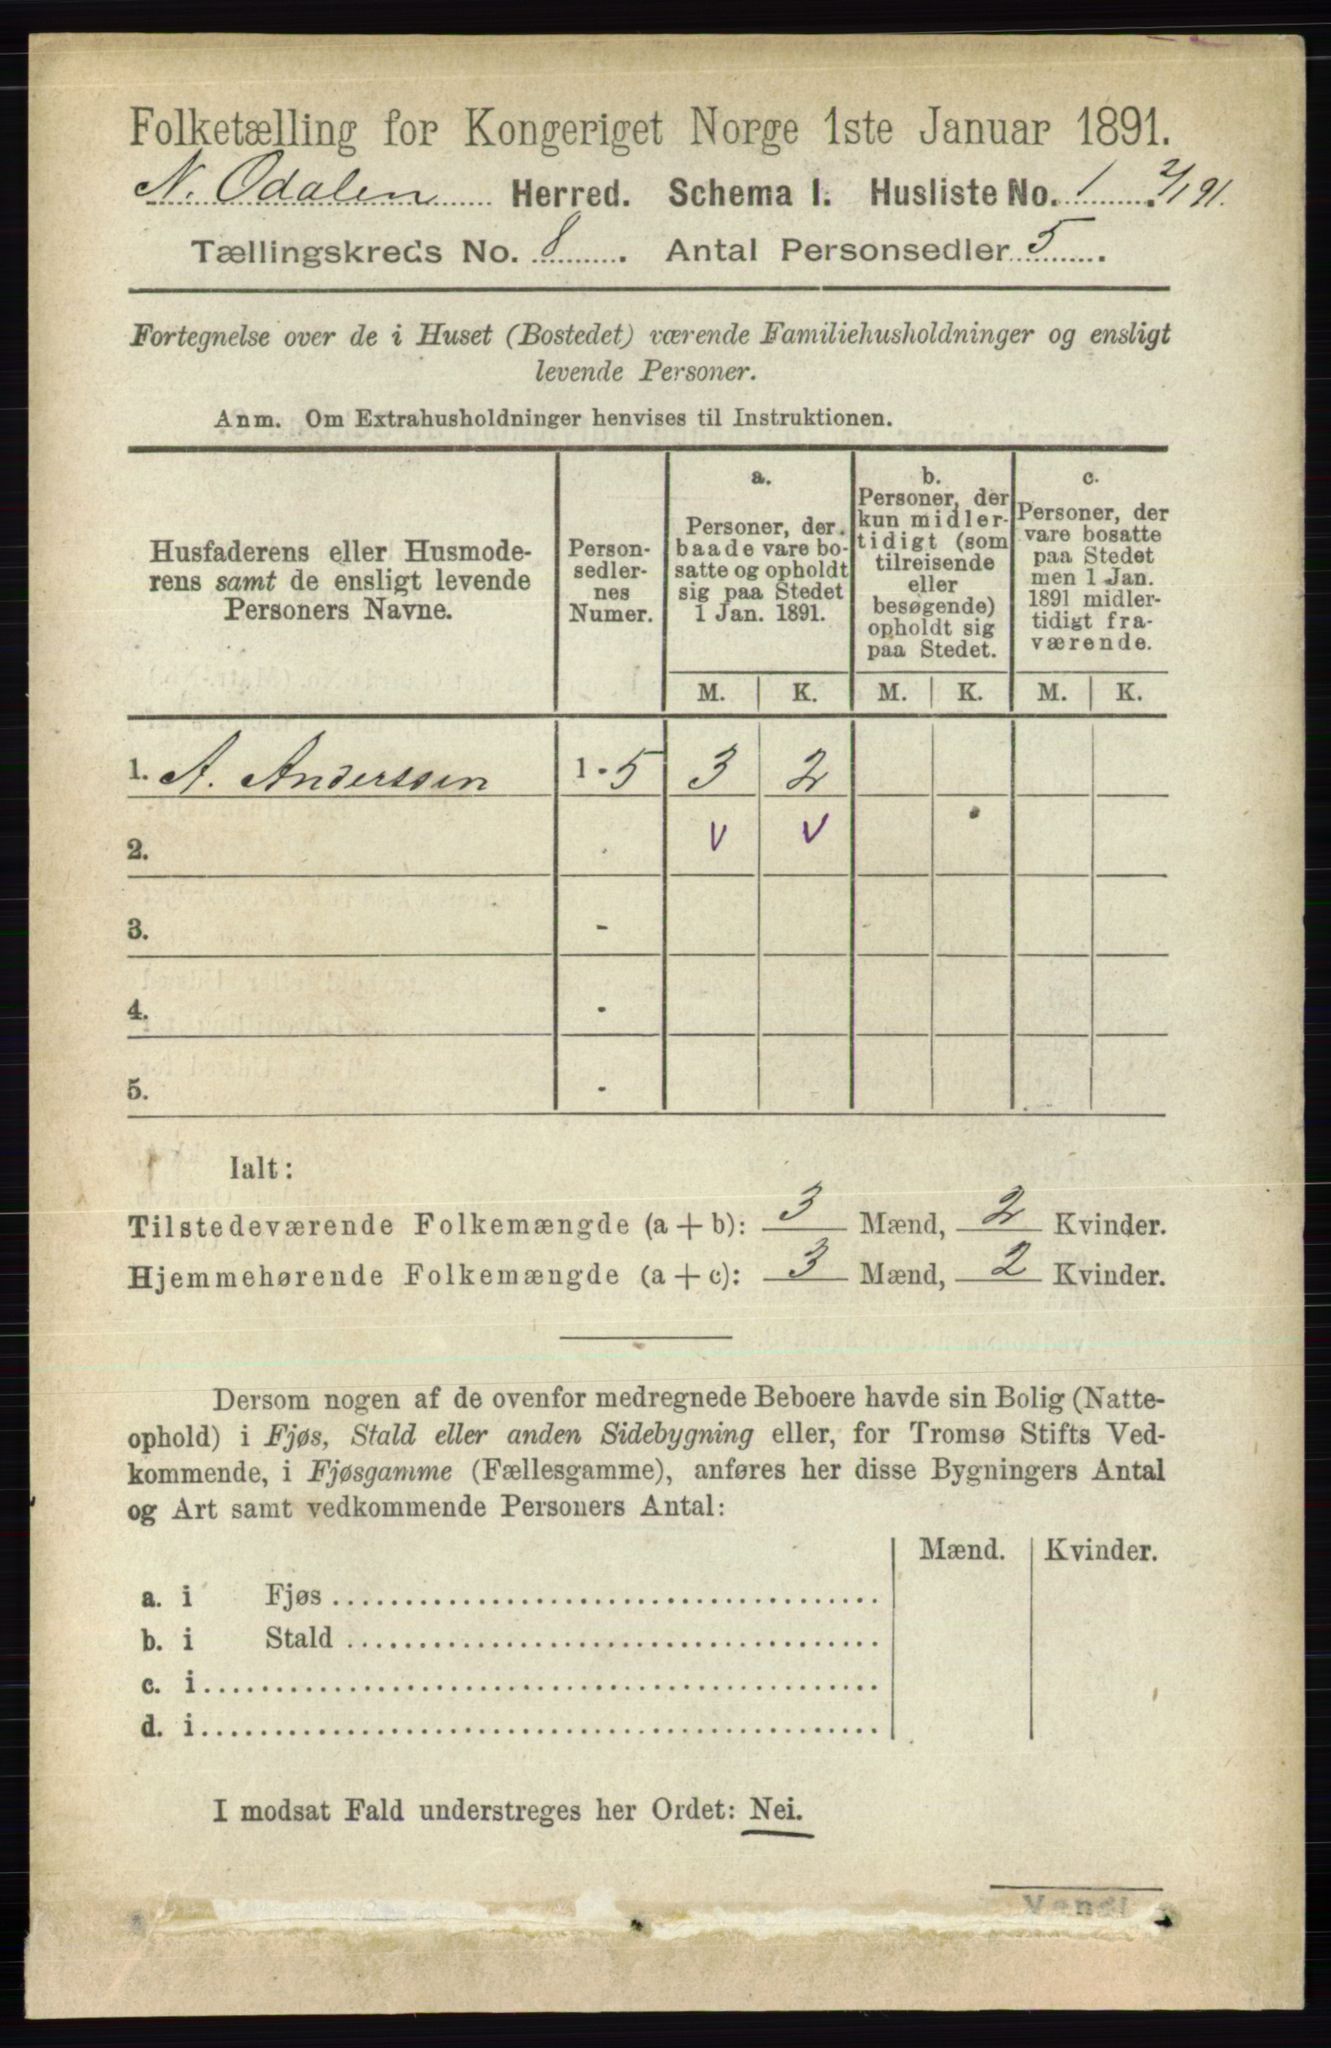 Folketælling for Kongeriget Norge 1ste Januar 1891.
N. Odalen Herred. Schema I. Husliste No. 1. 2/1 91.
Tællingskreds No. 8. Antal Personsedler 5.
Fortegnelse over de i Huset (Bostedet) værende Familiehusholdninger og ensligt
levende Personer.
Anm. Om Extrahusholdninger henvises til Instruktionen.
Husfaderens eller Husmode-
rens samt de ensligt levende
Personers Navne.
Person-
sedler-
nes
Numer.
a.
Personer, der
baade vare bo-
satte og opholdt
sig paa Stedet
1 Jan. 1891.
b.
Personer, der
kun midler-
tidigt (som
tilreisende
eller
besøgende)
opholdt sig
paa Stedet.
c.
Personer, der
vare bosatte
paa Stedet
men 1 Jan.
1891 midler-
tidigt fra-
værende.
M. K. M. K. M. K.
1. A. Anderssen 1-5 3 2
2. V V
3. -
4. -
5. -
Ialt:
Tilstedeværende Folkemængde (a + b): 3 Mænd, 2 Kvinder.
Hjemmehørende Folkemængde (a + c): 3 Mænd, 2 Kvinder.
Dersom nogen af de ovenfor medregnede Beboere havde sin Bolig (Natte-
ophold) i Fjøs, Stald eller anden Sidebygning eller, for Tromsø Stifts Ved-
kommende, i Fjøsgamme (Fællesgamme), anføres her disse Bygningers Antal
og Art samt vedkommende Personers Antal:
Mænd. Kvinder.
a. i Fjøs
b. i Stald
c. i
d. i
I modsat Fald understreges her Ordet: Nei.